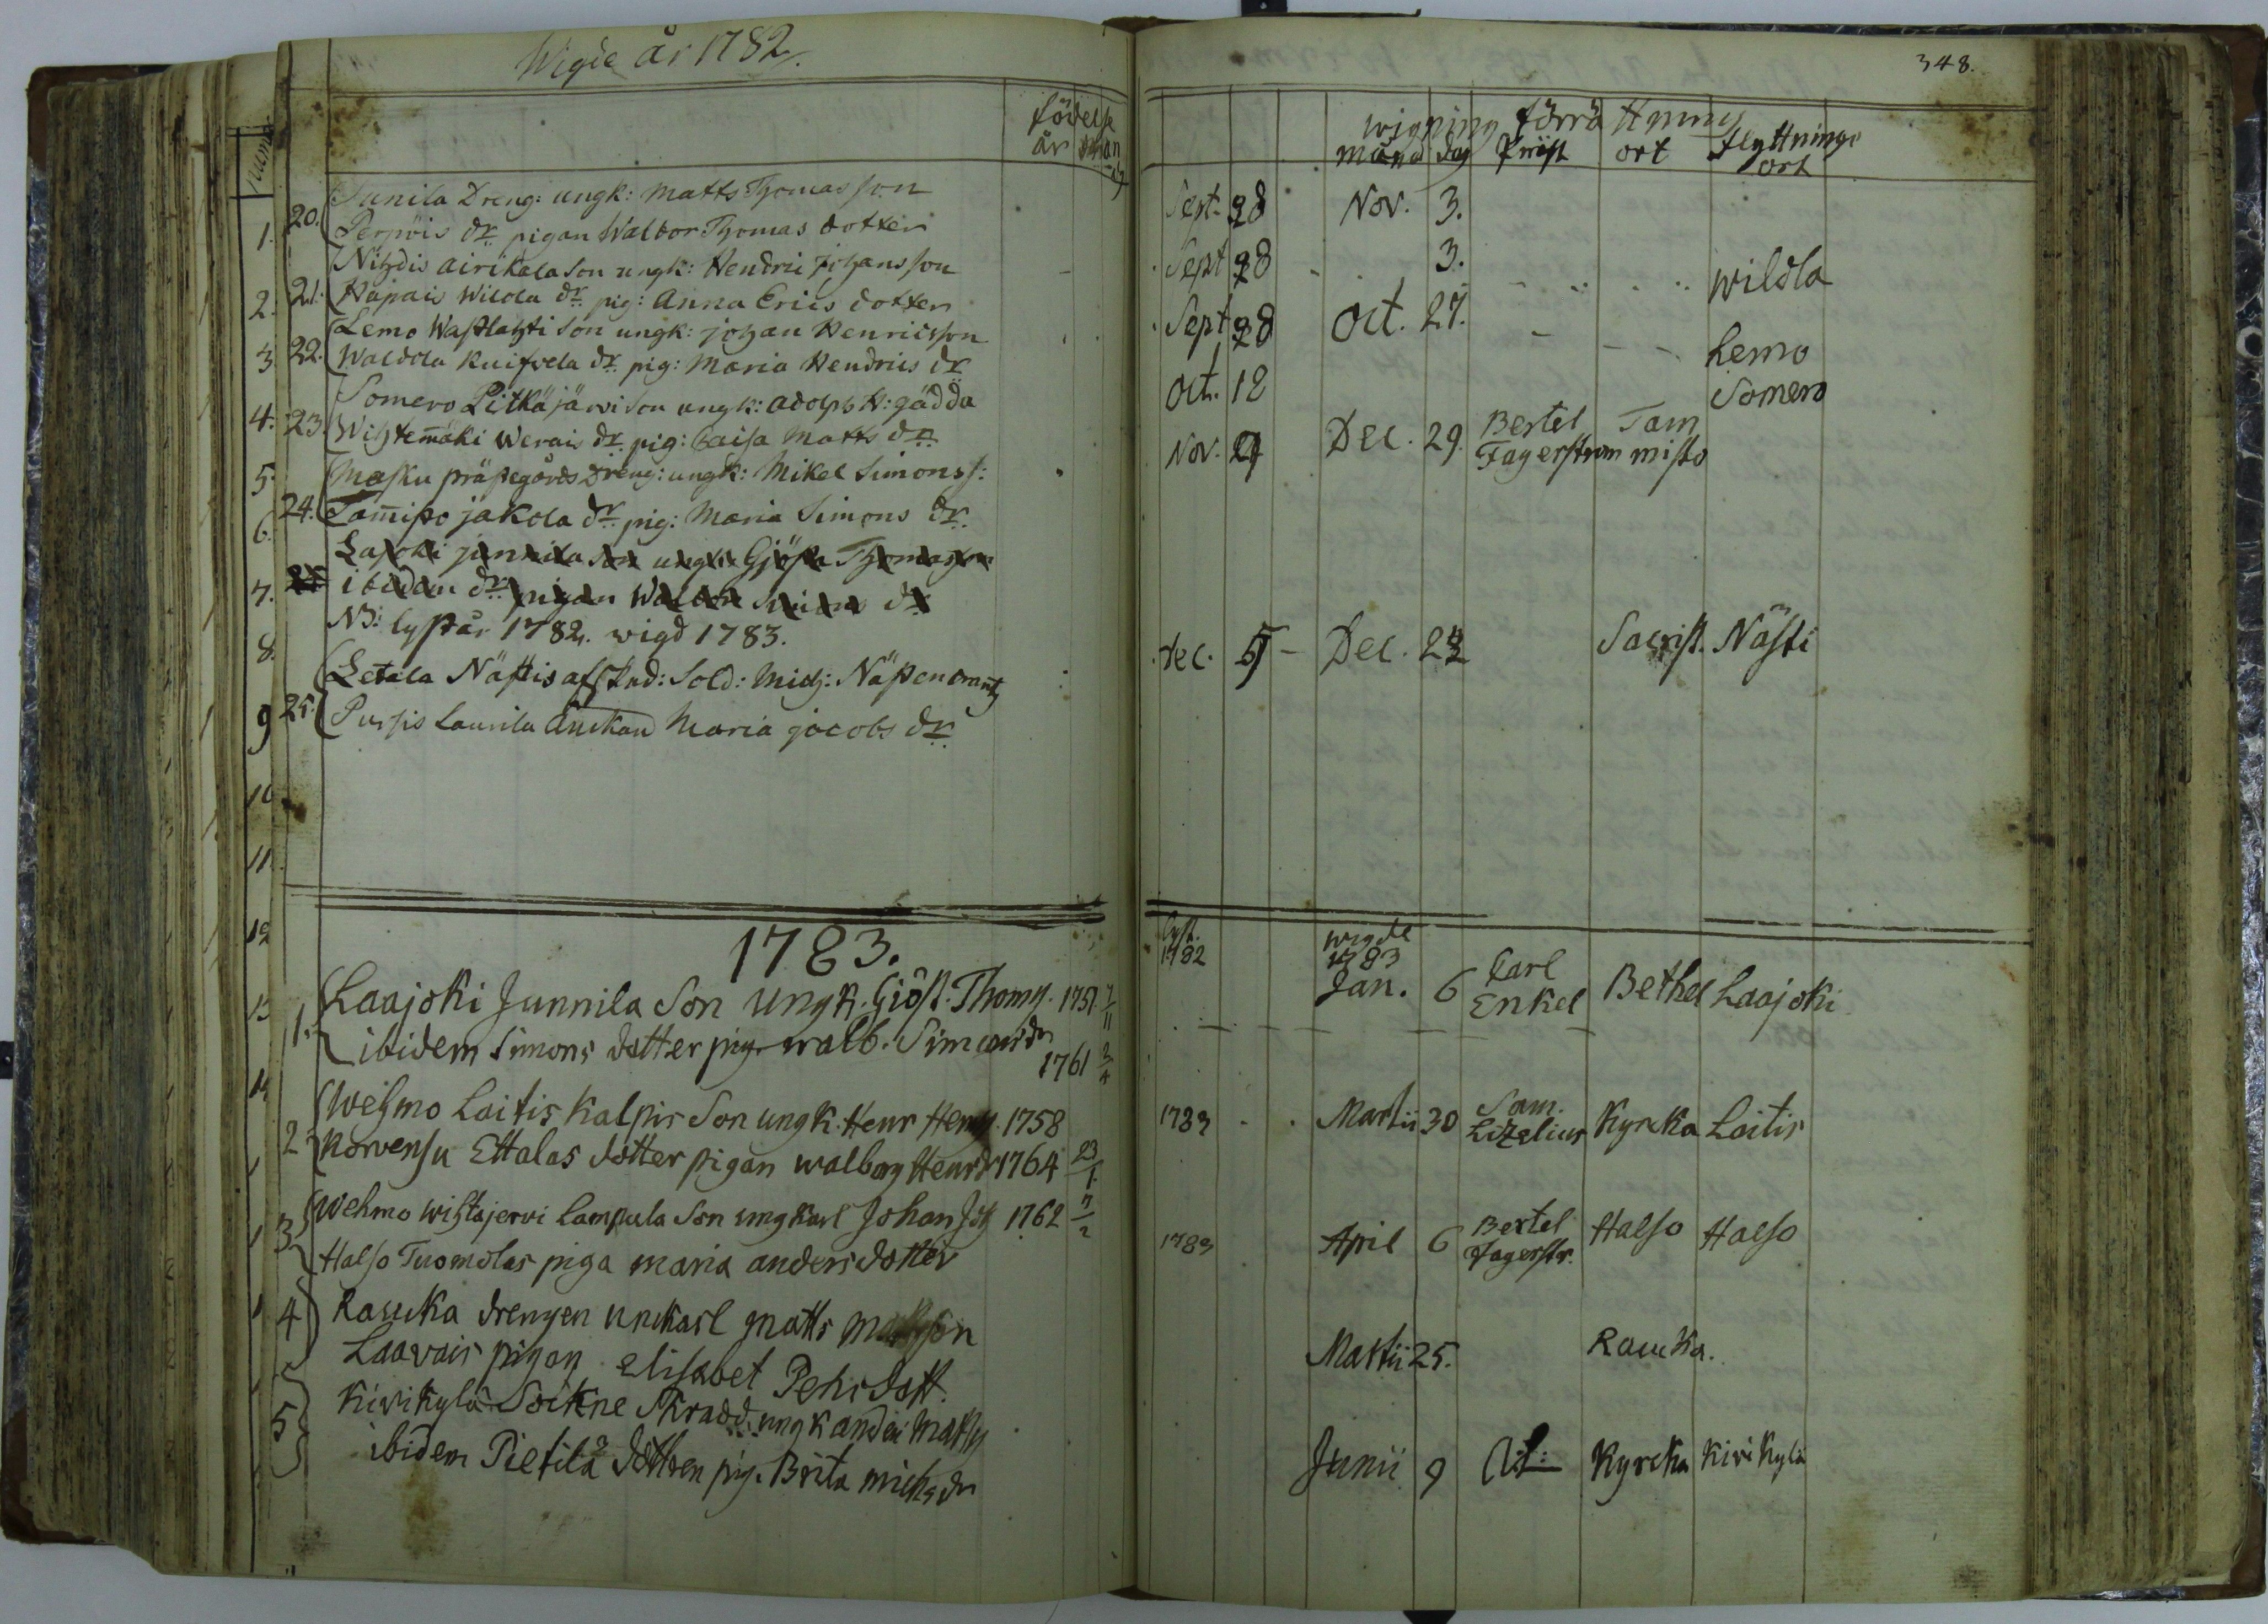 Wigde år 1782.
födelse
år
20. Junila Dreng: ungk: Matts Thomasson
Perjwis dr. pigan Walbor Thomas dotter
Nihdis airikala Son ungk: Hendric Johansson
21. Hapais Wilola dr. pig: Anna Erics dotter
Lemo Wastlahti Son ungk: Johan Henricsson
22. Waldola Kuifvela dr. pig: Maria Hendrics dr
Somero Pitkäjärvi Son ungk: Adolph H: gädda
23 Wihtemäki Werais dr. pig: Caisa Matts dr
Masku prästegårds Dreng: ungk: Mikel Simonss:
24. Tam̄isto Jakola dr. pig: Maria Simons dr.
Lajoki junnila son ungk: Gjöst Thomasson
25 ibidem dr. pigan Walbor Simons dr
NB: lyst år 1782. wigd 1783.
Letala Nästis afsked: Sold: Mich: Nästencrantz
25. Pursis Laurila änckan Maria Jacobs dr
1783.
1. Laajoki Junnila Son Ungk. Giöst. Thoms. 1751 7/11
ibidem Simons dotter pig. walb. Simonsdr
1761 2/4
2 Wehmo Laitis Kalpis Son ungk. Henr Henr. 1758
Korvensu Ettalas dotter pigan walborg Henrdr 1764 23/1
3 Wehmo wihtajervi Lampula Son ungkarl Johan Joh 1762 7/2
Halso Tuomolas piga maria anders dotter
4 Raucka drengen unckarl matts Matsson
Laavais pigan elisabet Pehrs dott.
5 Kivikylä Sockne Skradd. ungk anders Matts
ibidem Pietilä dottren pig. Brita michs dr
348.
wigning förrättning
månd dag Präst ort flyttnings
ort
Sept. 28 Nov. 3.
Sept 28 3. wildla
Sept 28 Oct. 27. Lemo
Oct. 12 Somero
Nov. Dec. 29. Bertel Tam
Fagerstrom misto
Dec. 5 Dec. 22 Sacrist. Nästi
lyst. wigde
1782 1783
Jan. 6 Carl
Enkel Bethel Laajoki
1783 Martii 30 Sam.
Lizelius Kyrcka Laitis
1783 April 6 Bertel
Fagerstr. Halso Halso
Martii 25. Raucka.
Junii 9 Kyrcka Kivikylä